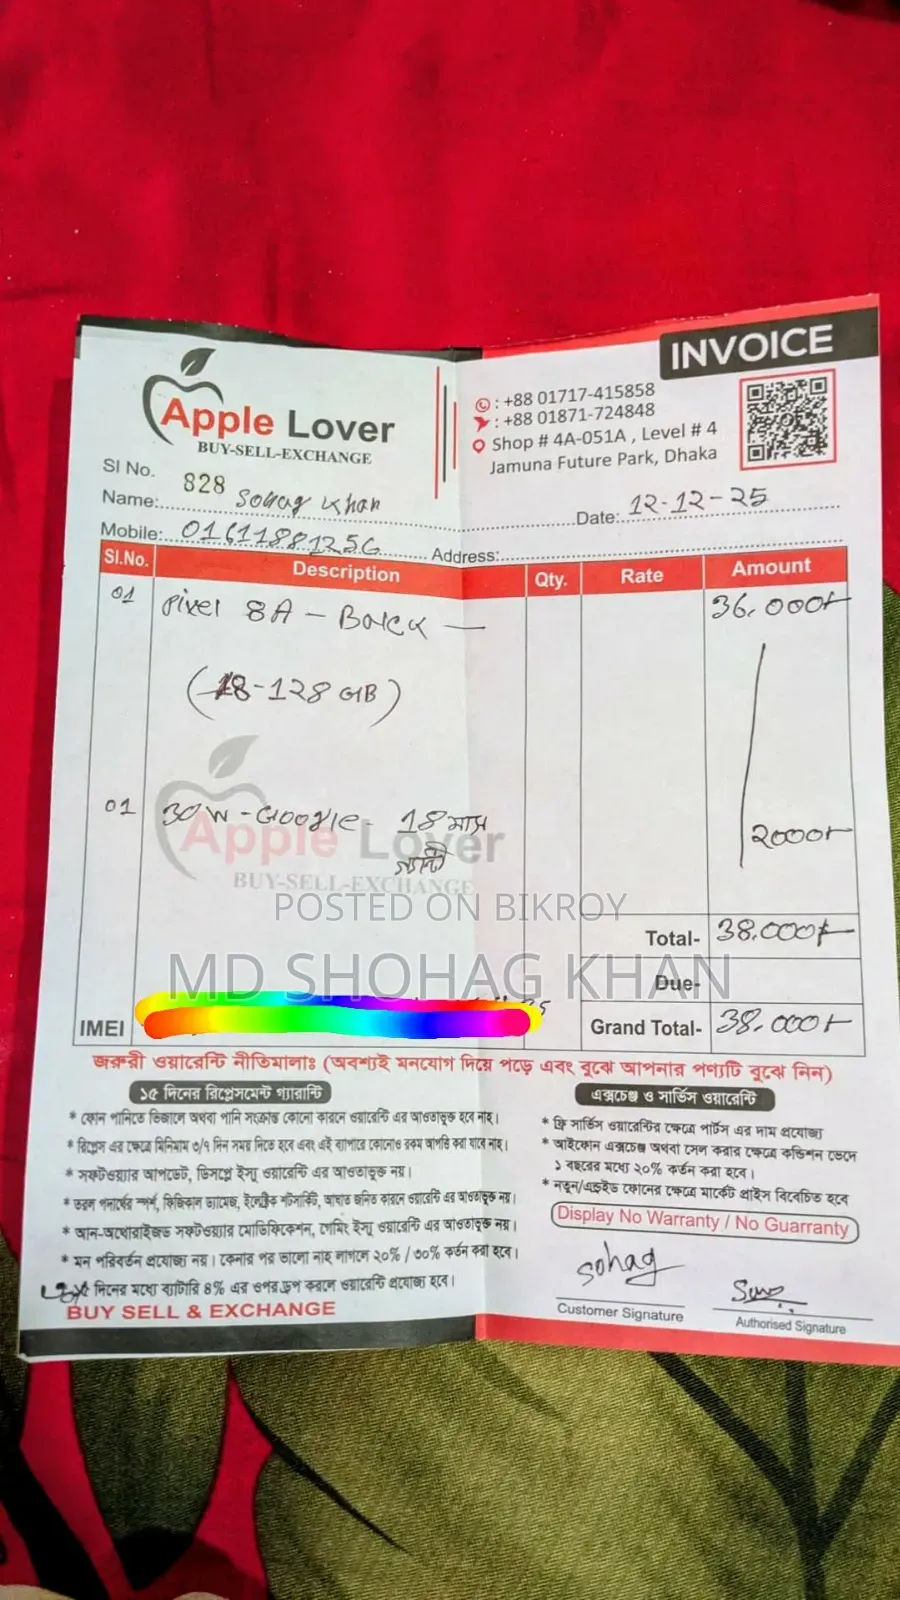 INVOICE
Apple Lover
BUY-SELL-EXCHANGE
: +88 01717-415858
: +88 01871-724848
Shop # 4A-051A , Level # 4
Jamuna Future Park, Dhaka
Sl No. 828
Name: Sohag Khan
Date: 12-12-25
Mobile: 01611881256 Address:
Sl.No. Description Qty. Rate Amount
01 Pixel 8A - 36,000/-
(8-128 GB)
01 30W - Google - 18 মাস
2000/-
Apple Lover
BUY-SELL-EXCHANGE
POSTED ON BIKROY
Total- 38,000/-
MD SHOHAG KHAN
Due-
IMEI
Grand Total- 38,000/-
জরুরী ওয়ারেন্টি নীতিমালাঃ (অবশ্যই মনযোগ দিয়ে পড়ে এবং বুঝে আপনার পণ্যটি বুঝে নিন)
১৫ দিনের রিপ্লেসমেন্ট গ্যারান্টি
* ফোন পানিতে ভিজালে অথবা পানি সংক্রান্ত কোনো কারনে ওয়ারেন্টি এর আওতাভুক্ত হবে নাহ।
* রিপ্লেস এর ক্ষেত্রে মিনিমাম ৩/৭ দিন সময় দিতে হবে এবং এই ব্যাপারে কোনোও রকম আপত্তি করা যাবে নাহ।
* সফটওয়্যার আপডেট, ডিসপ্লে ইস্যু ওয়ারেন্টি এর আওতাভুক্ত নয়।
* তরল পদার্থের স্পর্শ, ফিজিকাল ড্যামেজ, ইলেক্ট্রিক শর্টসার্কিট, আঘাত জনিত কারনে ওয়ারেন্টি এর আওতাভুক্ত নয়।
* আন-অথোরাইজড সফটওয়্যার মোডিফিকেশন, গেমিং ইস্যু ওয়ারেন্টি এর আওতাভুক্ত নয়।
* মন পরিবর্তন প্রযোজ্য নয়। কেনার পর ভালো নাহ লাগলে ২০% / ৩০% কর্তন করা হবে।
দিনের মধ্যে ব্যাটারি ৪% এর ওপর ড্রপ করলে ওয়ারেন্টি প্রযোজ্য হবে।
BUY SELL & EXCHANGE
এক্সচেঞ্জ ও সার্ভিস ওয়ারেন্টি
* ফ্রি সার্ভিস ওয়ারেন্টির ক্ষেত্রে পার্টস এর দাম প্রযোজ্য
* আইফোন এক্সচেঞ্জ অথবা সেল করার ক্ষেত্রে কন্ডিশন ভেদে
১ বছরের মধ্যে ২০% কর্তন করা হবে।
* নতুন/এন্ড্রইড ফোনের ক্ষেত্রে মার্কেট প্রাইস বিবেচিত হবে
Display No Warranty / No Guarranty
Sohag
Customer Signature
Authorised Signature